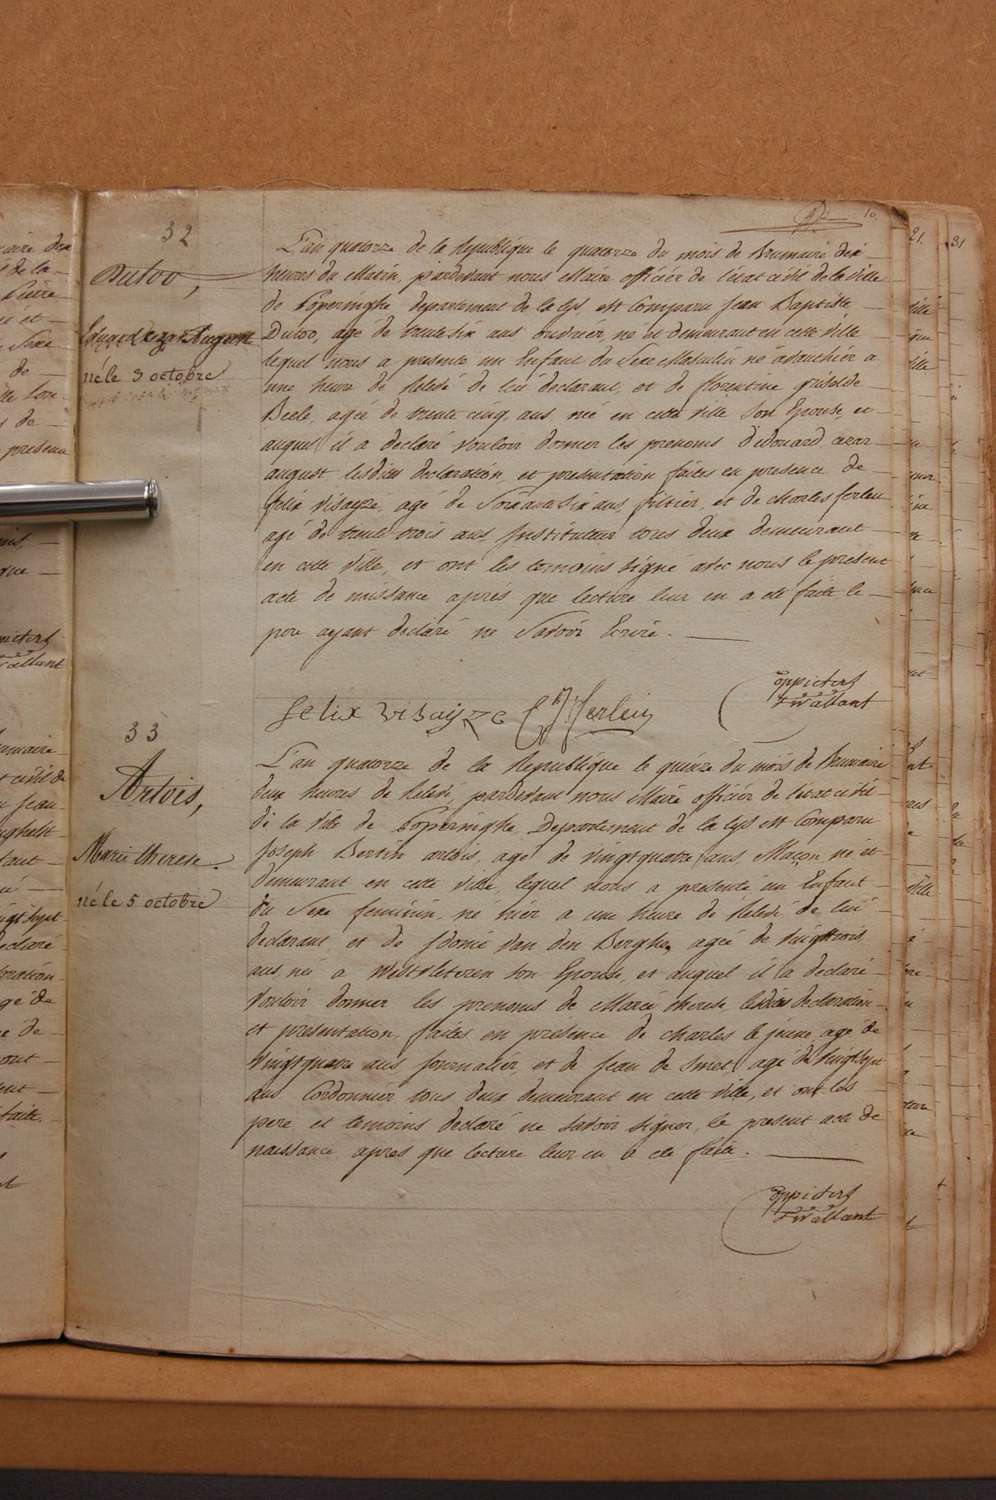 10.
32
Dutoo,
Eduard Cezar August
né le 3 octobre
L'an quatorze de la Republique le quatorze du mois de Brumaire dix
heures du Matin, pardevant nous Maire officier de l'état civil de la Ville
de Poperinghe departement de la Lys, est Comparu Jean Baptiste
Dutoo, agé de trente six ans ouvrier, né et demeurant en cette ville
lequel nous a presenté un Enfant du Sexe Masculin né avanthier a
une heure de relevé de lui declarant, et de florentine
Beele, ageé de trente cinq ans neé en cette ville Son Epouse, et
auquel il a declaré vouloir donner les prenoms d'edouard cezar
august lesdites declaration et presentation faites en presence de
felix Visayze, agé de Soixante Six ans, et de Charles ferlein
agé de trente trois ans Instituteur tous deux demeurant
en cette Ville, et ont les temoins signé avec nous le present
acte de naissance apres que lecture leur en a eté faite le
pere ayant declaré ne Savoir Ecrire.
felix visayze C J Ferlein
33
Artois,
Marie therese
né le 5 octobre
L'an quatorze de la Republique le quinze du mois de Brumaire
deux heures de relevé pardevant nous Maire officier de l'état civil
de la Ville de Poperinghe Departement de la Lys est Comparu
Joseph Bertin artois, agé de vingt quatre ans, Maçon né et
demeurant en cette Ville, lequel nous a presenté un Enfant
du Sexe feminin, né hier a une heure de relevé de lui
declarant et de Idonie Van den Berghe, ageé de vingt trois
ans, neé a Westvleteren son Epouse, et auquel il a declaré
vouloir donner les prenoms de Marie therese lesdites declaration
et presentation, faites en presence de Charles le jeune, agé de
vingt quatre ans Journalier, et de Jean de Smet, agé de vingt sept
ans Cordonnier tous deux demeurant en cette Ville, et ont les
pere et temoins declaré ne savoir signer, le present acte de
naissance apres que lecture leur en a eté faite.